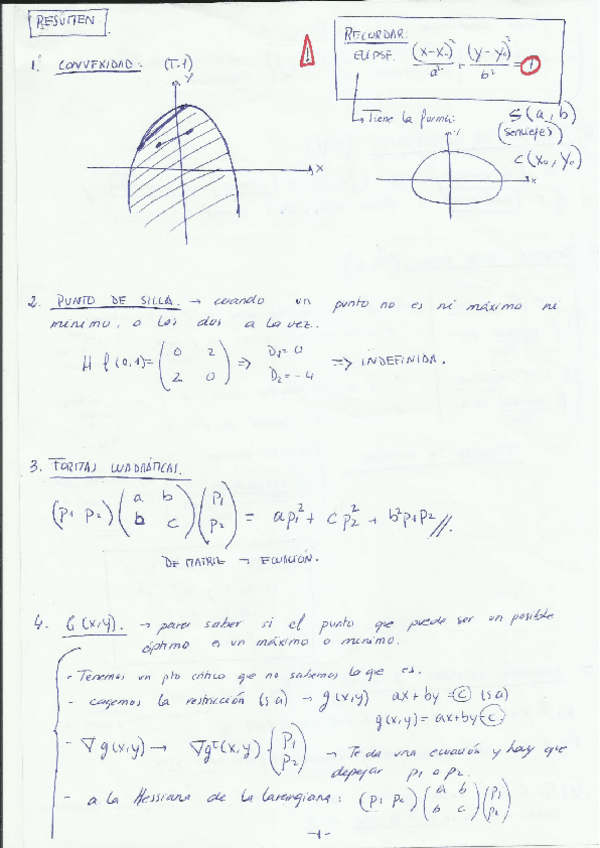 RESUMEN
1. CONVEXIDAD: (T.1)
y
x
RECORDAR:
ELIPSE. (x-x₀)²/a² + (y-y₀)²/b² = 1
Tiene la forma:
S(a, b)
(semiejes)
C(x₀, y₀)
x
2. PUNTO DE SILLA. → cuando un punto no es ni máximo ni
mínimo, o los dos a la vez.
H f(0,1) = (0 2 / 2 0) => D₁=0 D₂=-4 => INDEFINIDA.
3. FORMAS CUADRÁTICAS.
(p1 p2) (a b / b c) (p1 / p2) = ap1² + cp2² + b²p1p2 //.
DE MATRIZ → ECUACIÓN.
4. G(x,y). → para saber si el punto que puede ser un posible
óptimo es un máximo o mínimo.
- Tenemos un pto crítico que no sabemos lo que es.
- cogemos la restricción (s.a) → g(x,y) ax + by = c (s.a)
g(x,y) = ax+by-c
- ∇g(x,y) → ∇gᵗ(x,y) · (p1 / p2) → Te da una ecuación y hay que
depejar p1 o p2.
- a la Hessiana de la Larengiana: (p1 p2) (a b / b c) (p1 / p2)
-1-